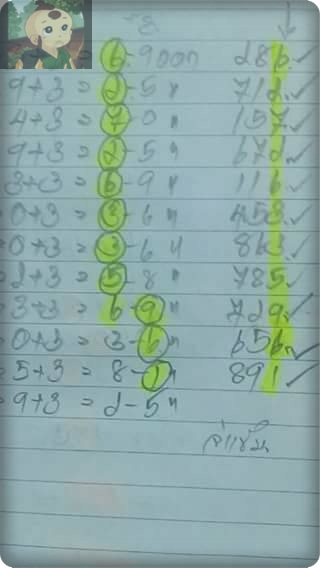 6-9ออก 286 ✓
9+3 = 2-5 " 712 ✓
4+3 = 7-0 " 157 ✓
9+3 = 2-5 " 672 ✓
3+3 = 6-9 " 116 ✓
0+3 = 3-6 " 453 ✓
0+3 = 3-6 " 863 ✓
2+3 = 5-8 " 785 ✓
3+3 = 6-9 " 729 ✓
0+3 = 3-6 " 656 ✓
5+3 = 8-1 " 891 ✓
9+3 = 2-5 "